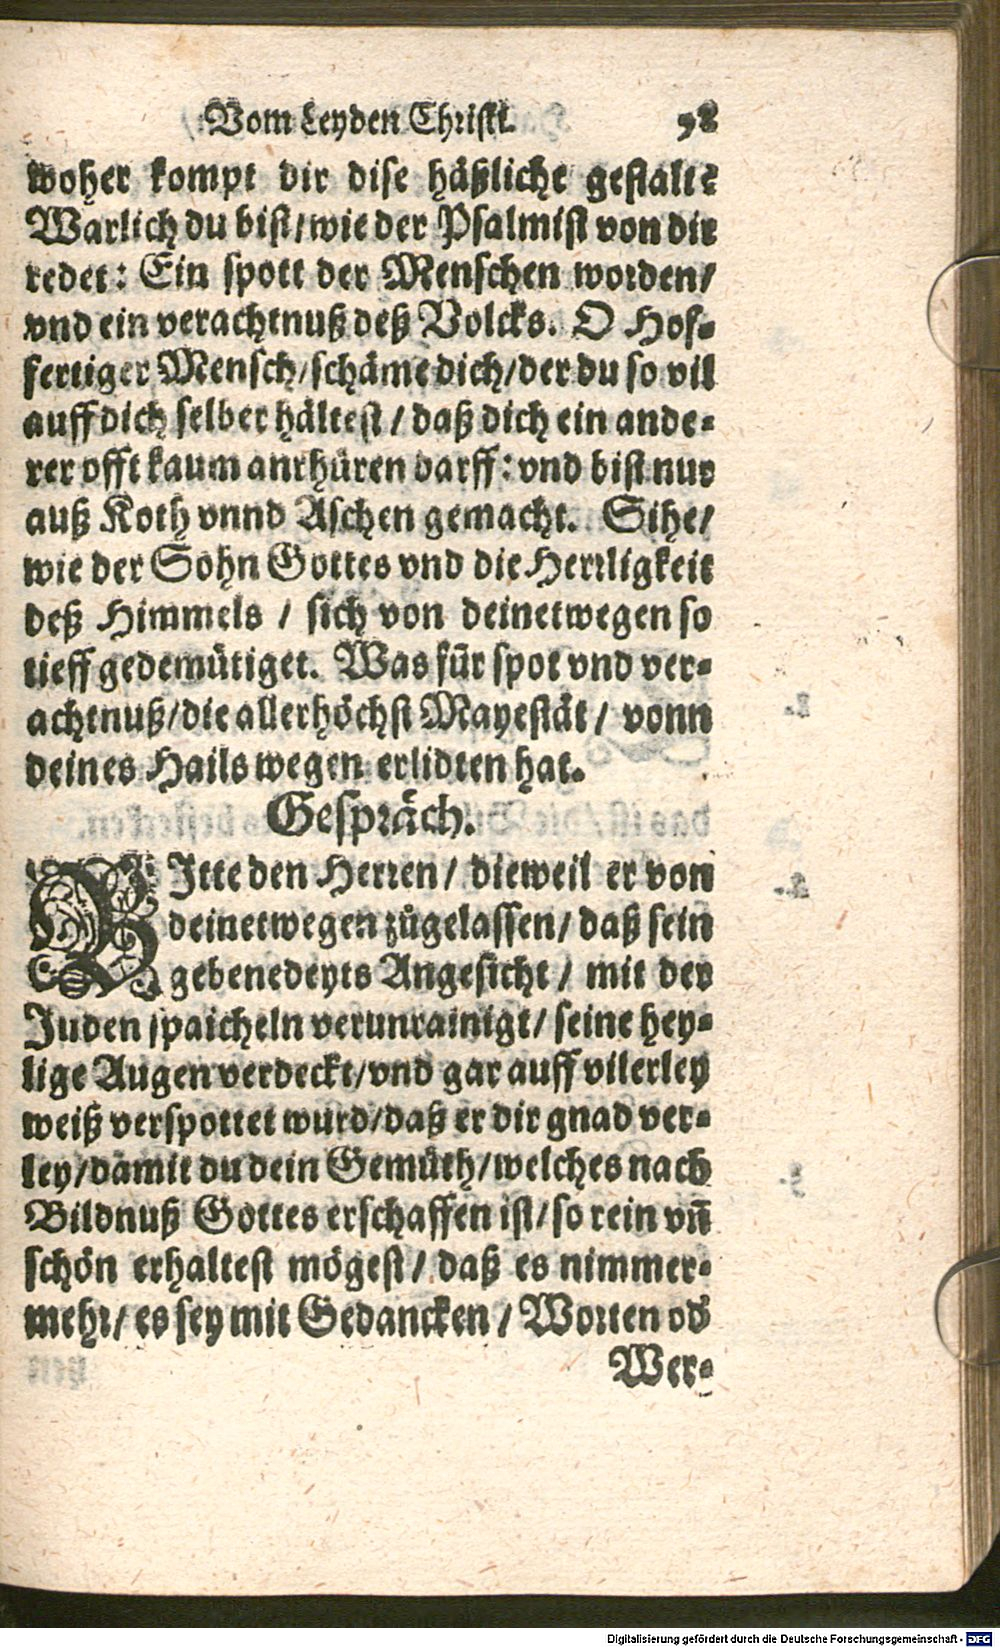 Vom Leyden Christi. 58
woher kompt dir dise häßliche gestalt?
Warlich du bist/ wie der Psalmist von dir
redet: Ein spott der Menschen worden/
vnd ein verachtnuß deß Volcks. O Hof-
fertiger Mensch/ schäme dich/ der du so vil
auff dich selber hältest / daß dich ein ande-
rer offt kaum anrhüren darff: vnd bist nur
auß Koth vnnd Aschen gemacht. Sihe/
wie der Sohn Gottes vnd die Herrligkeit
deß Himmels / sich von deinetwegen so
tieff gedemütiget. Was für spot vnd ver-
achtnuß/ die allerhöchst Mayestät / vonn
deines Hails wegen erlidten hat.
Gespräch.
BJtte den Herren / dieweil er von
deinetwegen zůgelassen/ daß sein
gebenedeyts Angesicht / mit der
Juden spaicheln verunrainigt/ seine hey-
lige Augen verdeckt/ vnd gar auff vilerley
weiß verspottet wurd/ daß er dir gnad ver-
ley/ damit du dein Gemüth/ welches nach
Bildnuß Gottes erschaffen ist/ so rein vñ
schön erhaltest mögest/ daß es nimmer-
mehr/ es sey mit Gedancken / Worten od̕
Wer-
Digitalisierung gefördert durch die Deutsche Forschungsgemeinschaft - DFG